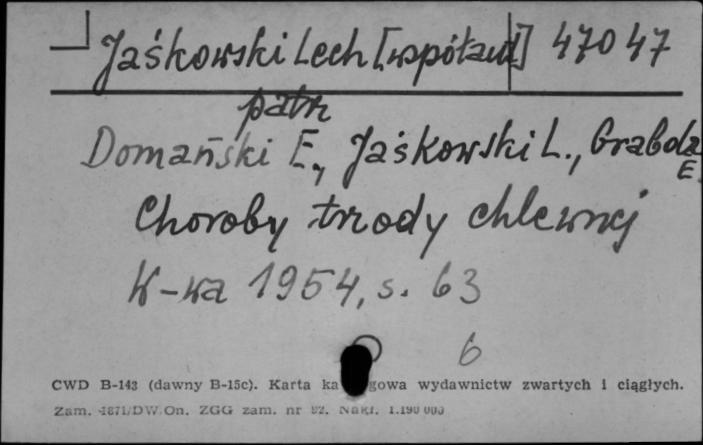 Jaśkowski Lech [współaut] 47047
patrz
Domański E., Jaśkowski L., Graboda E.
Choroby trzody chlewnej
W-wa 1954, s. 63
6
CWD B-143 (dawny B-15c). Karta ka gowa wydawnictw zwartych i ciągłych.
Zam. 4871/DW/On. ZGG zam. nr 92. Nakł. 1.190 000